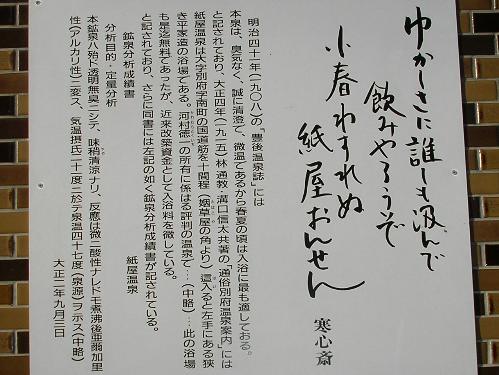 ゆかしさに誰しも汲んで
飲みやろうぞ
小春わすれぬ
紙屋おんせん
寒心斎
明治四十一年(一九〇八)の『豊後温泉誌』には
本泉は、臭気なく、誠に清澄で、微温であるから春夏の頃は入浴に最も適しておる。
と記されており、大正四年(一九一五)林 通教・溝口信太共著の、『通俗別府温泉案内』には
紙屋温泉は大字別府字南町の国道筋を十間程(烟草屋の角より)這入ると左手にある狭
き平家造の浴場である。河村徳一の所有に係はる評判の温泉で…(中略)…此の浴場
も是迄無料であったが、近来改築資金として入浴料を徴している。
と記されており、さらに同書には左記の如く鉱泉分析成績書が記されている。
鉱泉分析成績書
紙屋温泉
分析目的・定量分析
本鉱泉ハ殆ド透明無臭ニシテ、味稍清涼ナリ、反應は微ニ酸性ナレドモ煮沸後亜爾加里
性(アルカリ性)ニ変ス、気温摂氏二十二度ニ於テ泉温四十七度(泉源)ヲ示ス(中略)
大正二年九月三日